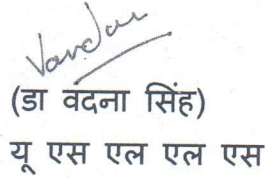 Vandan
(डा वदना सिंह)
यू एस एल एल एस